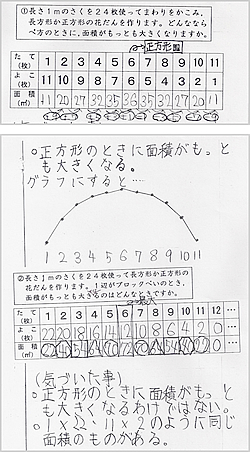 ①長さ1mのさくを24枚使ってまわりをかこみ、
長方形か正方形の花だんを作ります。どんななら
べ方のときに、面積がもっとも大きくなりますか。
正方形
たて(枚) 1 2 3 4 5 6 7 8 9 10 11
よこ(枚) 11 10 9 8 7 6 5 4 3 2 1
面積(㎡) 11 20 27 32 35 36 35 32 27 20 11
○正方形のときに面積がもっと
も大きくなる。
グラフにすると…
1 2 3 4 5 6 7 8 9 10 11
②長さ1mのさくを24枚使って長方形か正方形の
花だんを作ります。1辺がブロックべいのとき、
面積がもっとも大きいのはどんなときですか。
たて(枚) 1 2 3 4 5 6 7 8 9 10 11 12 …
よこ(枚) 22 20 18 16 14 12 10 8 6 4 2 0 …
面積(㎡)
(気づいた事)
○正方形のときに面積がもっ
とも大きくなるわけではない。
○1×22、11×2のように同じ
面積のものがある。